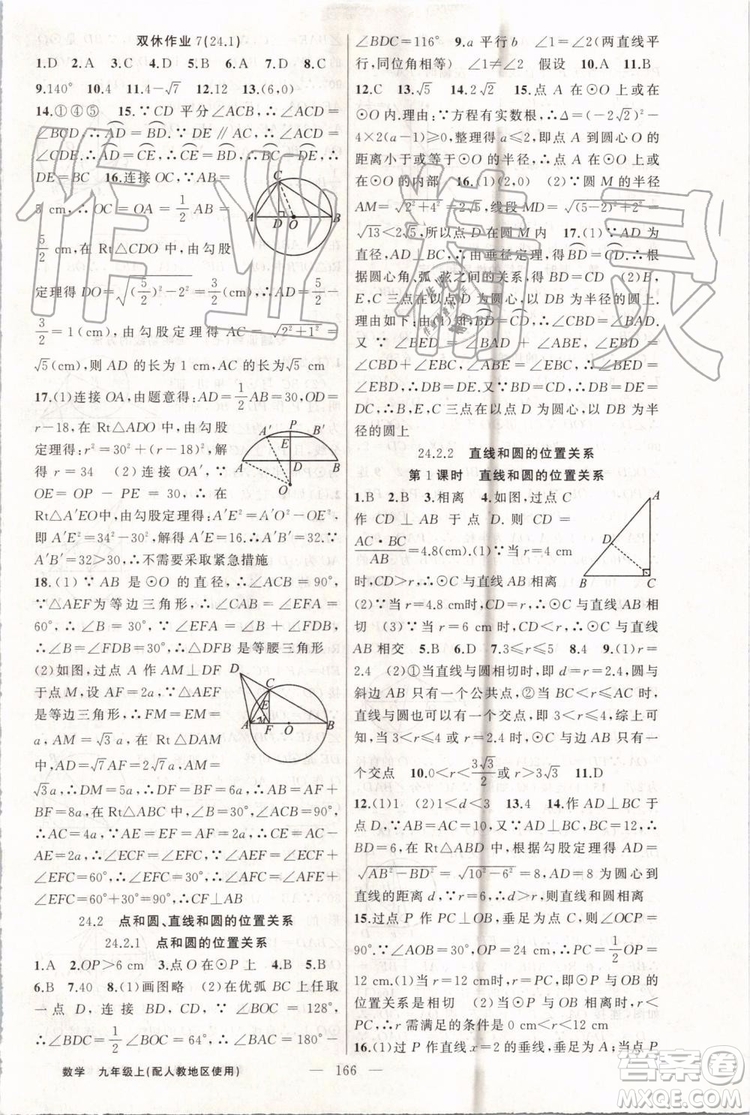 双休作业7(24.1)
1.D 2.A 3.C 4.B 5.D 6.D 7.D 8.C
9.140° 10.4 11.4-√7 12.12 13.(6,0)
14.①④⑤ 15.∵CD平分∠ACB,∴∠ACD=
∠BCD,∴AD=BD,又∵DE∥AC,∴∠ACD=
∠CDE,∴AD=CE,∴BD=CE,∴DE=BC,∴
DE=BC 16.连接OC,∵AB=
5 cm,∴OC=OA=1/2AB=
5/2 cm,在Rt△CDO中,由勾股
定理得DO=√((5/2)²-2²)=
3/2=1(cm),由勾股定理得AC=√(2²+1²)=
√5(cm),则AD的长为1 cm,AC的长为√5 cm
17.(1)连接OA,由题意得:AD=1/2AB=30,OD=
r-18,在Rt△ADO中,由勾股
定理得:r²=30²+(r-18)²,解
得r=34 (2)连接OA′,∵
OE=OP-PE=30,∴在
Rt△A′EO中,由勾股定理得:A′E²=A′O²-OE²,即
A′E²=34²-30²,解得A′E=16,∴A′B′=32,∵
A′B′=32>30,∴不需要采取紧急措施
18.(1)∵AB是⊙O的直径,∴∠ACB=90°,
∵△AEF为等边三角形,∴∠CAB=∠EFA=
60°,∴∠B=30°,∵∠EFA=∠B+∠FDB,
∴∠B=∠FDB=30°,∴△BFD是等腰三角形
(2)如图,过点A作AM⊥DF于
点M,设AF=2a,∵△AEF是
等边三角形,∴FM=EM=
a,AM=√3a,在Rt△DAM
中,AD=√7AF=2√7a,AM=
√3a,∴DM=5a,∴DF=BF=6a,∴AB=AF+
BF=8a,在Rt△ABC中,∠B=30°,∠ACB=
90°,∴AC=4a,∵AE=EF=AF=2a,∴CE=
AC-AE=2a,∴∠ECF=∠EFC,∵∠AEF=
∠ECF+∠EFC=60°,∴∠CFE=30°,∴∠AFC=
∠AFE+∠EFC=60°+30°=90°,∴CF⊥AB
24.2 点和圆、直线和圆的位置关系
24.2.1 点和圆的位置关系
1.A 2.OP>6 cm 3.点C在⊙P上 4.B 5.B
6.B 7.40 8.(1)画图略 (2)在优弧BC上任取
一点D,连接BD,CD,∵∠BOC=128°,
∴∠BDC=1/2∠BOC=64°,∴∠BAC=180°-
∠BDC=116° 9.a平行b ∠1=∠2(两直线平
行,同位角相等) ∠1≠∠2 假设 10.A 11.B
在⊙O
内,理由:∵方程有实数根,∴Δ=(-2√2)²-
4×2(a-1)≥0,整理得a≤2,即点A到圆心O的
距离小于或等于⊙O的半径,∴点A在⊙O上或
在⊙O的内部 16.(1)(2,0) (2)∵圆M的半径
AM=√(2²+4²)=2√5,线段MD=√((5-2)²+2²)=
√13<2√5,所以点D在圆M内 17.(1)∵AD为
直径,AD⊥BC,∴由垂径定理得:BD=CD,∴根
据圆心角、弧、弦之间的关系得,BD=CD (2)B,
E,C三点在以点D为圆心,以DB为半径的圆上.
半
径的圆上
24.2.2 直线和圆的位置关系
第1课时 直线和圆的位置关系
1.B 2.B 3.相离 4.如图,过点C
作CD⊥AB于点D,则CD=
AC·BC/AB=4.8(cm) (1)当r=4 cm
时,CD>r,∴⊙C与直线AB相离
(2)当r=4.8 cm时,CD=r,∴⊙C与直线AB相
切 (3)当r=6 cm时,CD<r,∴⊙C与直线
AB相交 5.B 6.D 7.0≤d<5 8.B 9.(1)r=
2.4 (2)①当直线与圆相切时,即d=r=2.4,圆与
斜边AB只有一个公共点;②当直线与圆相交时,
d<r,圆与斜边AB只有一个交点,则3<r≤4,综上可
知,当r=2.4或3<r≤4时,⊙C与边AB只有一
个交点 10.0<r<3√3/2或r>3√3/2 11.D
12.(1)1 (2)1<d<3 13.4 14.作AD⊥BC于
点D,∵AB=AC=10,又∵AD⊥BC,BC=12,
∴BD=CD=1/2BC=6,∴根据勾股定理得AD=
√(AB²-BD²)=√(10²-6²)=8,而⊙A的半径为7,
∴AD>r,∴直线BC与⊙A的位置关系为相离
15.过点P作PC⊥OB,垂足为点C,则∠OCP=
90°.∵∠AOB=30°,OP=24 cm,∴PC=1/2OP=
12 cm. (1)当r=12 cm时,r=PC,∴⊙P与OB
位置关系是相切 (2)当⊙P与OB相离时,r<PC,
∴r需满足的条件是0<r<12 cm
16.(1)连接AP,过点P作PH⊥x轴,垂足为点H.
数学 九年级上(配人教地区使用) — 166 —